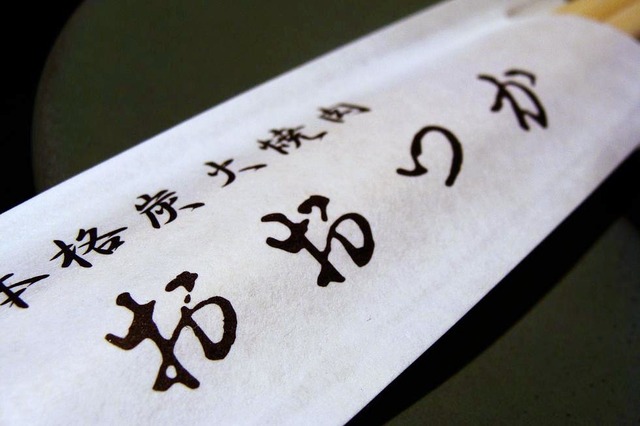 本格炭火焼肉
おおつか